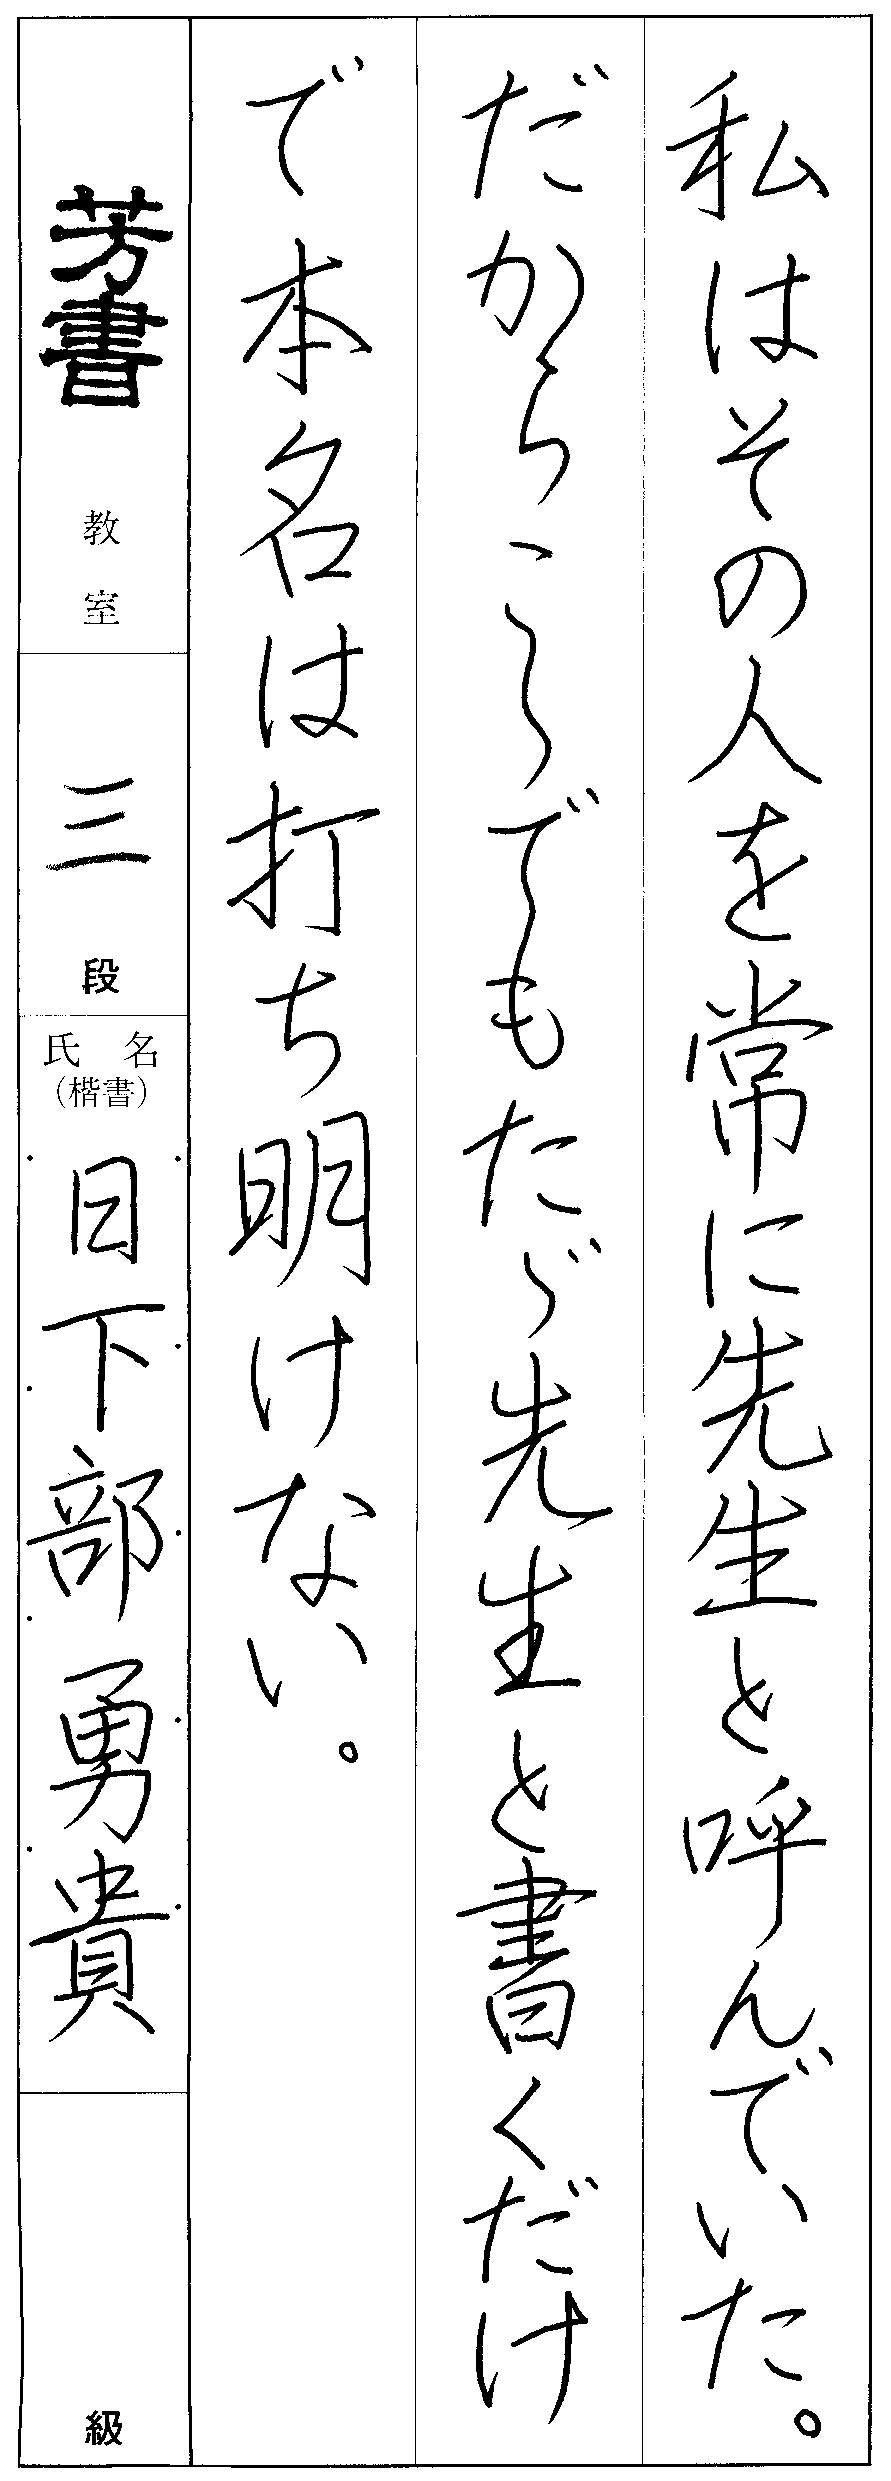 私はその人を常に先生と呼んでいた。
だからこゝでもたゞ先生と書くだけ
で本名は打ち明けない。
芳書教室
三段
氏名
(楷書)
日下部勇貴
級